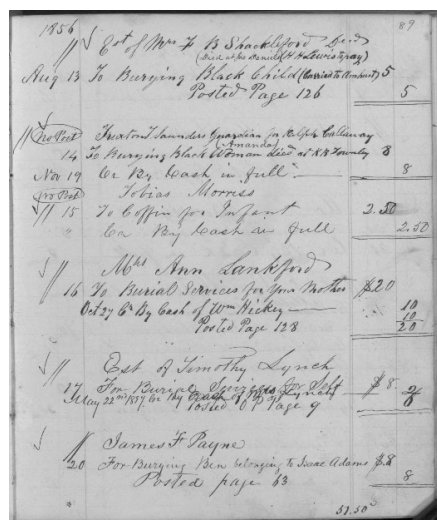 1856 89
// Est of Mrs F B Shackleford Decd
(Died at her Daniel H H Lewis to pay)
Aug 13 To Burying Black Child (Carried to Amherst) 5
Posted Page 126 5
// no Post Truxton Saunders Guardian for Ralph Callaway
(Amanda)
14 To Burying Black Woman died at R R Townly 8
Nov 19 Cr By Cash in full 8
no Post Tobias Morriss
// 15 To Coffin for Infant 2.50
" Cr By Cash in full 2.50
// Mrs Ann Lankford
16 To Burial Services for Your Mother $20
Oct 27 Cr By Cash of Wm Hickey 10
10
Posted Page 128 20
// Est of Timothy Lynch
17 For Burial Services for Self $8
May 22nd 1857 Cr By Cash of Lynch 2
Posted C P Page 9 6
// James F. Payne
20 For Burying Ben belonging to Isaac Adams $8
Posted page 63 8
51.50